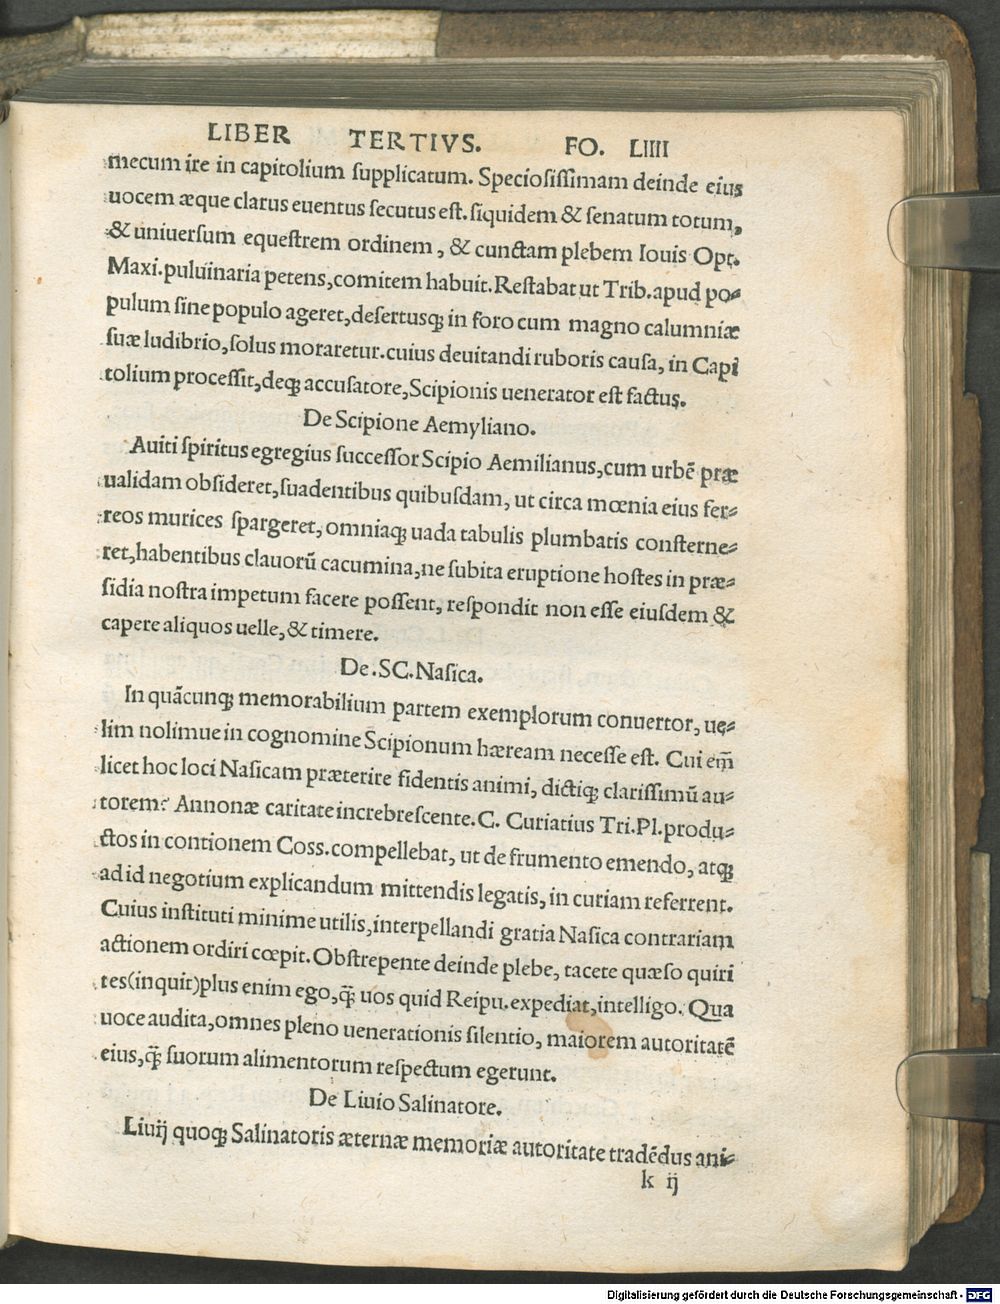 LIBER TERTIVS. FO. LIIII
mecum ire in capitolium ſupplicatum. Specioſiſſimam deinde eius
uocem æque clarus euentus ſecutus eſt. ſiquidem & ſenatum totum,
& uniuerſum equeſtrem ordinem, & cunctam plebem Iouis Opt.
Maxi. puluinaria petens, comitem habuit. Reſtabat ut Trib. apud po-
pulum ſine populo ageret, deſertusq; in foro cum magno calumniæ
ſuæ ludibrio, ſolus moraretur. cuius deuitandi ruboris cauſa, in Capi
tolium proceſſit, deq; accuſatore, Scipionis uenerator eſt factus.
De Scipione Aemyliano.
Auiti ſpiritus egregius ſucceſſor Scipio Aemilianus, cum urbē præ
ualidam obſideret, ſuadentibus quibuſdam, ut circa mœnia eius fer-
reos murices ſpargeret, omniaq; uada tabulis plumbatis conſterne-
ret, habentibus clauorũ cacumina, ne ſubita eruptione hoſtes in præ-
ſidia noſtra impetum facere poſſent, reſpondit non eſſe eiuſdem &
capere aliquos uelle, & timere.
De .SC. Naſica.
In quãcunq; memorabilium partem exemplorum conuertor, ue-
lim nolimue in cognomine Scipionum hæream neceſſe eſt. Cui em̃
licet hoc loci Naſicam præterire fidentis animi, dictiq; clariſſimũ au-
torem? Annonæ caritate increbreſcente. C. Curiatius Tri. Pl. produ-
ctos in contionem Coss. compellebat, ut de frumento emendo, atq;
ad id negotium explicandum mittendis legatis, in curiam referrent.
Cuius inſtituti minime utilis, interpellandi gratia Naſica contrariam
actionem ordiri cœpit. Obſtrepente deinde plebe, tacete quæſo quiri
tes (inquit) plus enim ego, q̃ uos quid Reipu. expediat, intelligo. Qua
uoce audita, omnes pleno uenerationis ſilentio, maiorem autoritatē
eius, q̃ ſuorum alimentorum reſpectum egerunt.
De Liuio Salinatore.
Liuij quoq; Salinatoris æternæ memoriæ autoritate tradēdus ani-
k ij
Digitalisierung gefördert durch die Deutsche Forschungsgemeinschaft - DFG